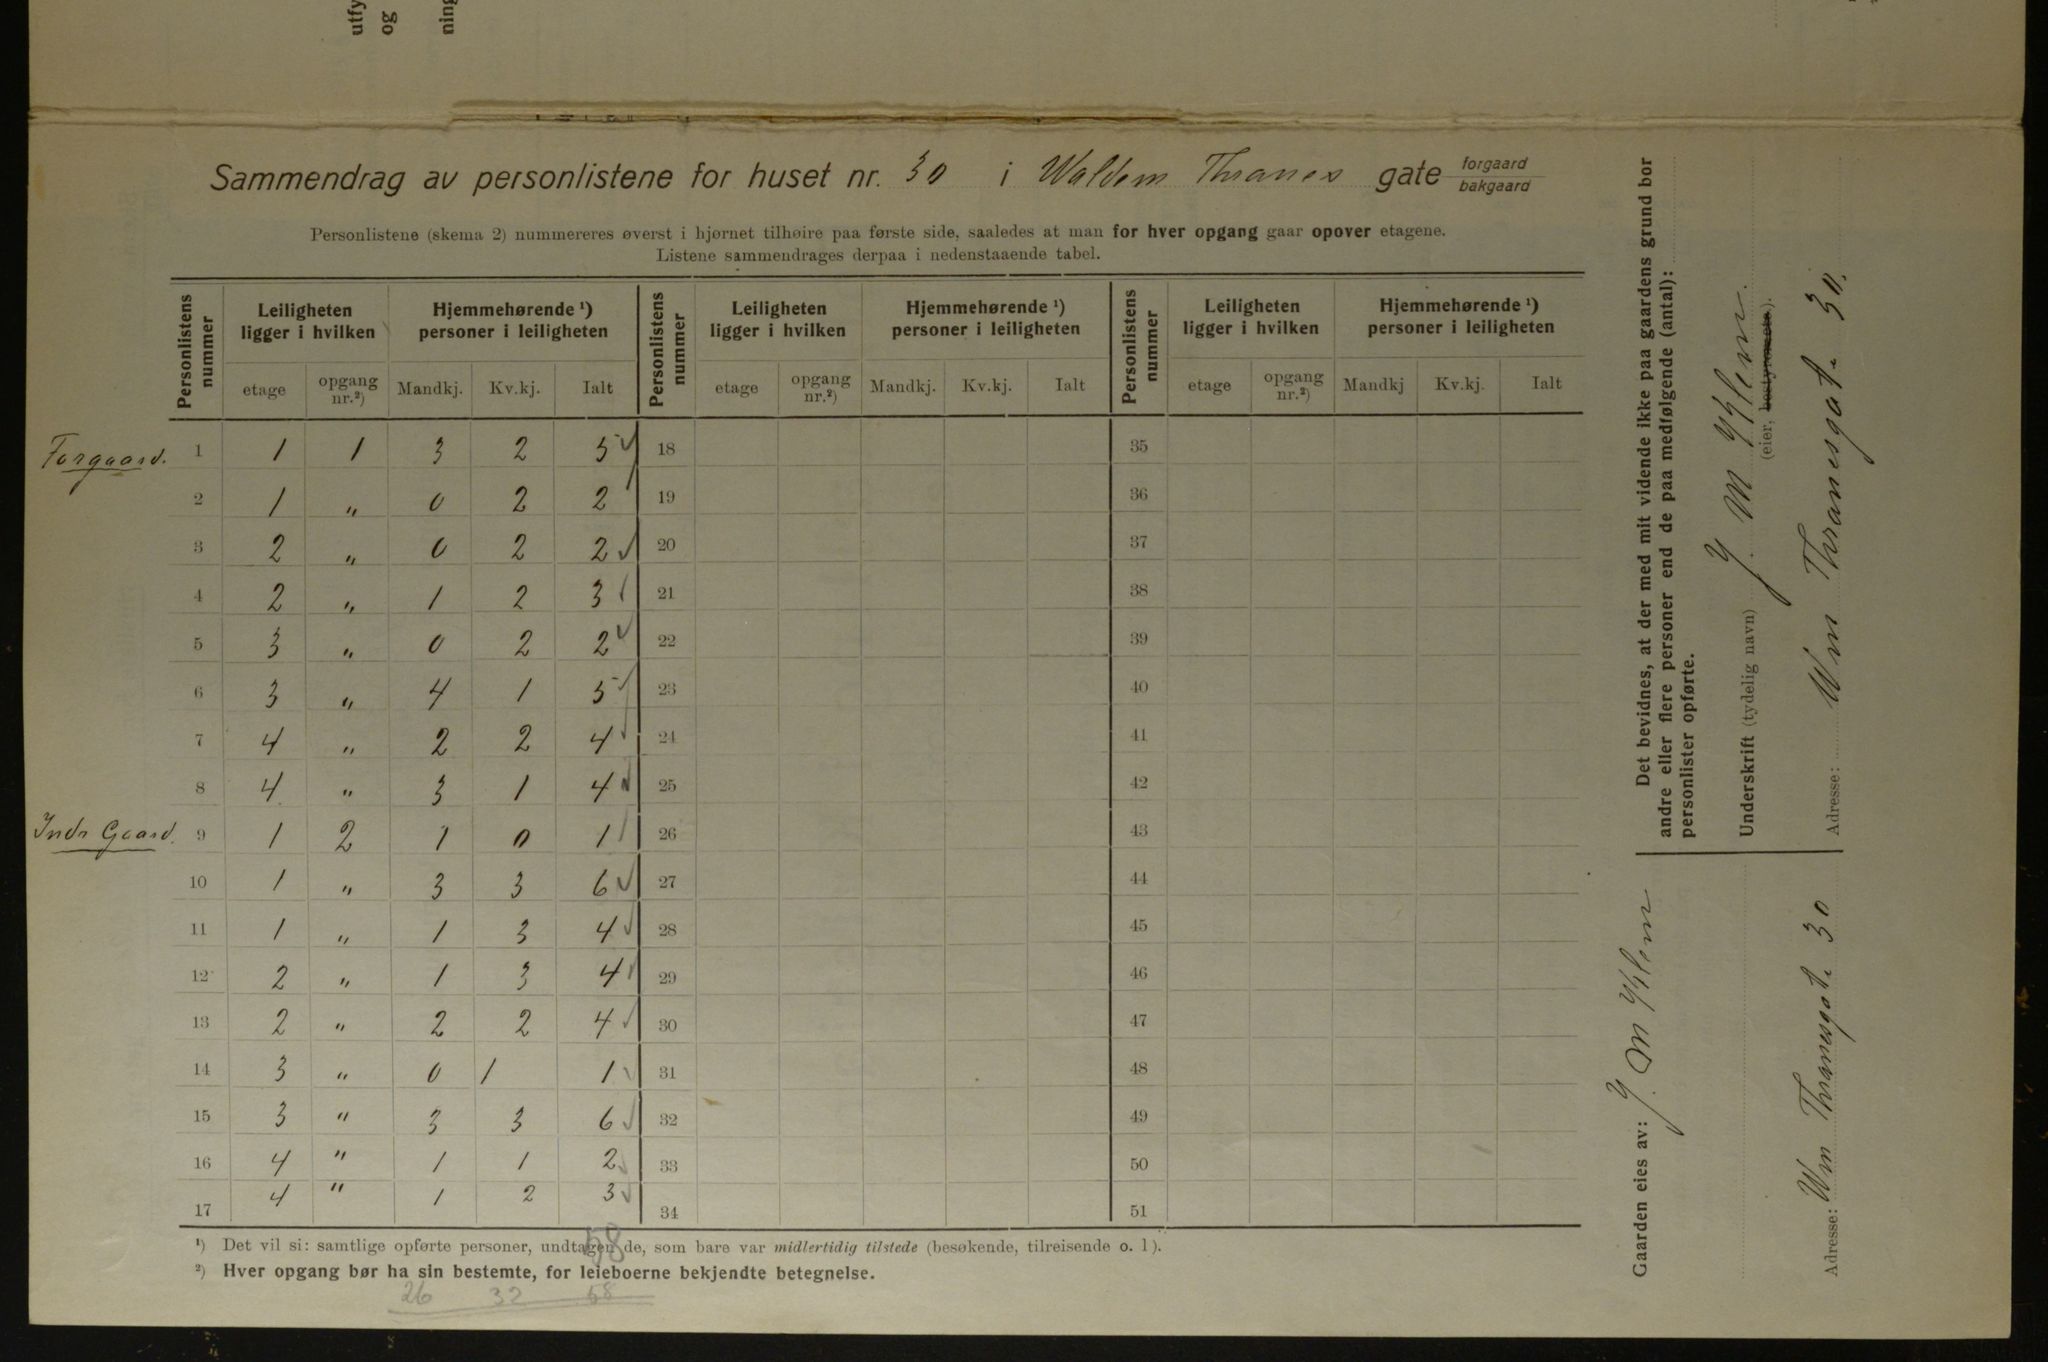 Sammendrag av personlistene for huset nr. 30 i Waldem Thranes gate forgaard bakgaard
Personlistene (skema 2) nummereres øverst i hjørnet tilhøire paa første side, saaledes at man for hver opgang gaar opover etagene.
Listene sammendrages derpaa i nedenstaaende tabel.
Personlistens nummer | Leiligheten ligger i hvilken | Hjemmehørende ¹) personer i leiligheten | Personlistens nummer | Leiligheten ligger i hvilken | Hjemmehørende ¹) personer i leiligheten | Personlistens nummer | Leiligheten ligger i hvilken | Hjemmehørende ¹) personer i leiligheten
etage | opgang nr.²) | Mandkj. | Kv.kj. | Ialt | etage | opgang nr.²) | Mandkj. | Kv.kj. | Ialt | etage | opgang nr.²) | Mandkj | Kv.kj. | Ialt
Forgaard. 1 1 1 3 2 5 18 35
2 1 " 0 2 2 19 36
3 2 " 0 2 2 20 37
4 2 " 1 2 3 21 38
5 3 " 0 2 2 22 39
6 3 " 4 1 5 23 40
7 4 " 2 2 4 24 41
8 4 " 3 1 4 25 42
Indr Gaard. 9 1 2 1 0 1 26 43
10 1 " 3 3 6 27 44
11 1 " 1 3 4 28 45
12 2 " 1 3 4 29 46
13 2 " 2 2 4 30 47
14 3 " 0 1 1 31 48
15 3 " 3 3 6 32 49
16 4 " 1 1 2 33 50
17 4 " 1 2 3 34 51
58
¹) Det vil si: samtlige opførte personer, undtagen de, som bare var midlertidig tilstede (besøkende, tilreisende o. l).
²) Hver opgang bør ha sin bestemte, for leieboerne bekjendte betegnelse.
26 32 58
Det bevidnes, at der med mit vidende ikke paa gaardens grund bor
andre eller flere personer end de paa medfølgende (antal):
personlister opførte.
Underskrift (tydelig navn)
(eier, bestyrer etc).
Adresse: Wm Thranesgat. 30.
Gaarden eies av:
Adresse: Wm Thranesgat. 30